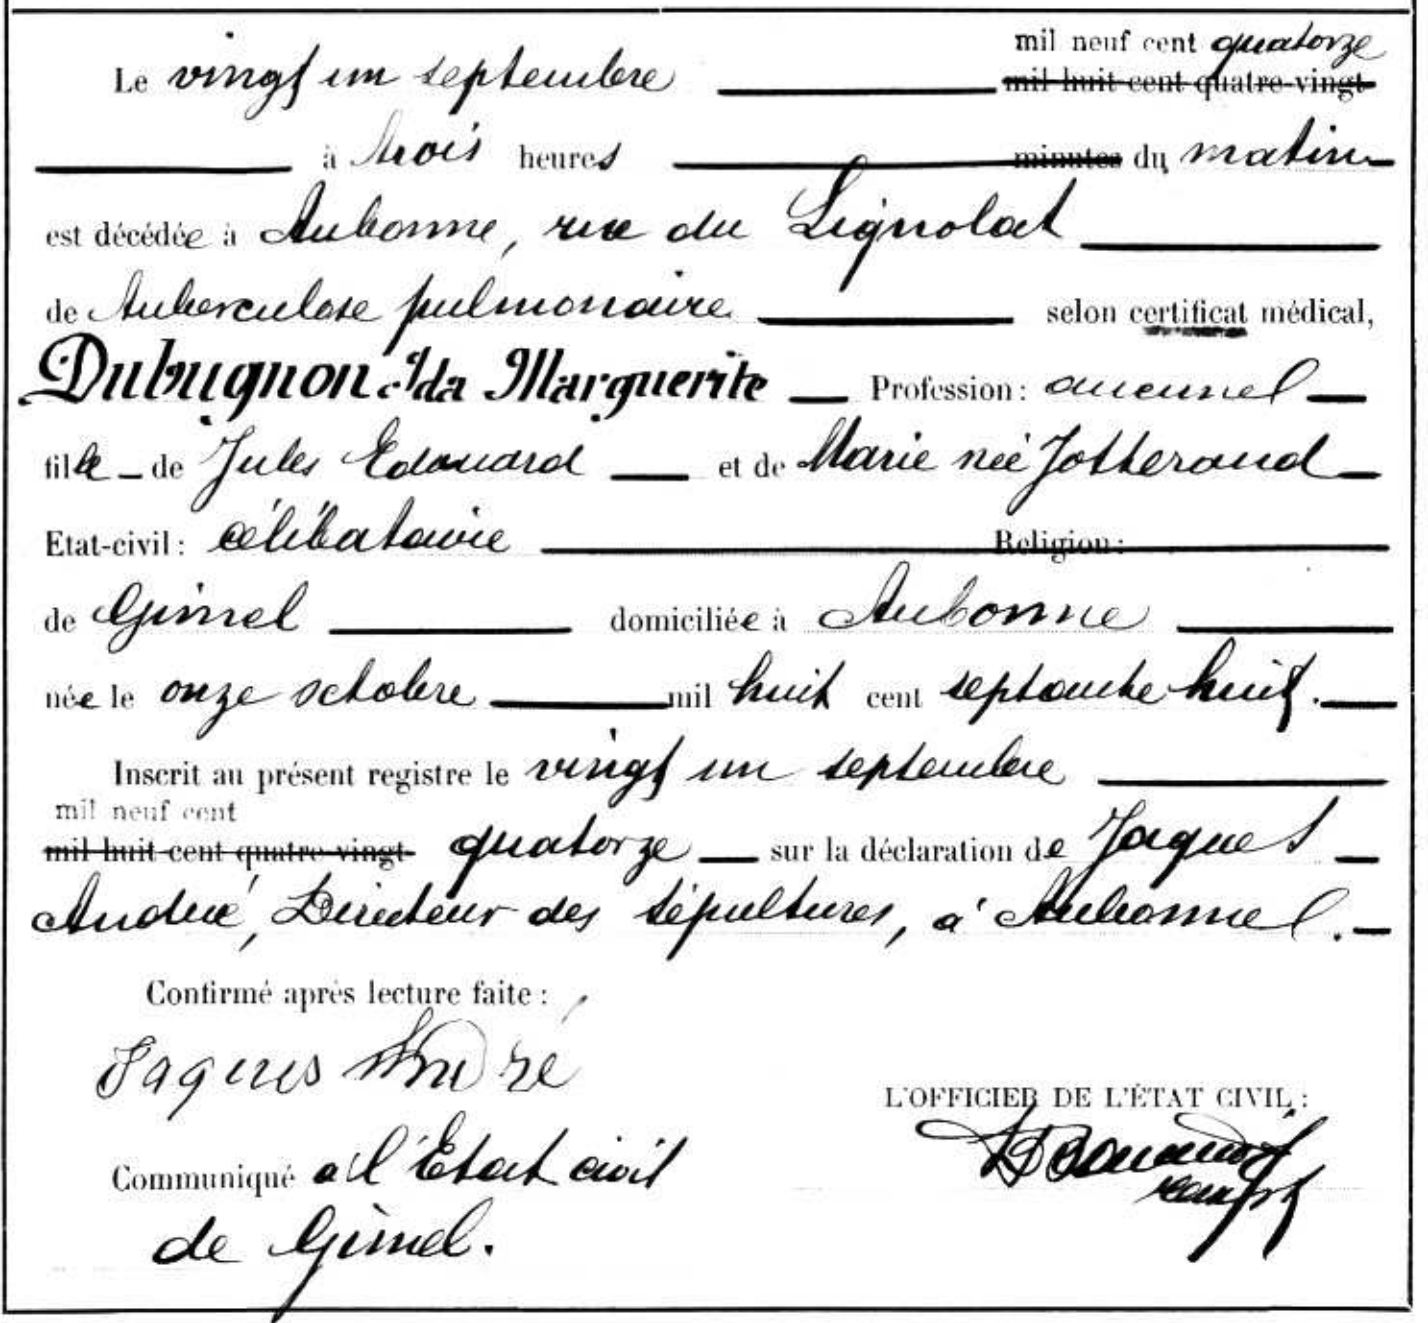 mil neuf cent quatorze
Le vingt un septembre mil huit cent quatre-vingt
à trois heures minutes du matin
est décédée à Aubonne, rue du Lignolat
de tuberculose pulmonaire selon certificat médical,
Dubugnon Ida Marguerite Profession: aucune
fille de Jules Edouard et de Marie née Jotterand
Etat-civil: célibataire Religion:
de Gimel domiciliée à Aubonne
née le onze octobre mil huit cent septante huit.
Inscrit au présent registre le vingt un septembre
mil neuf cent
mil huit cent quatre-vingt quatorze sur la déclaration de Jaques
André, Directeur des sépultures, à Aubonne.
Confirmé après lecture faite:
Jaques André
L'OFFICIER DE L'ÉTAT CIVIL:
Communiqué à l'Etat civil
de Gimel.